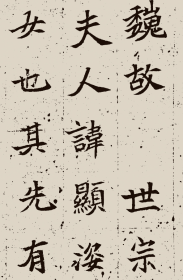 魏故 世宗
夫人諱顯姿
女也其先有